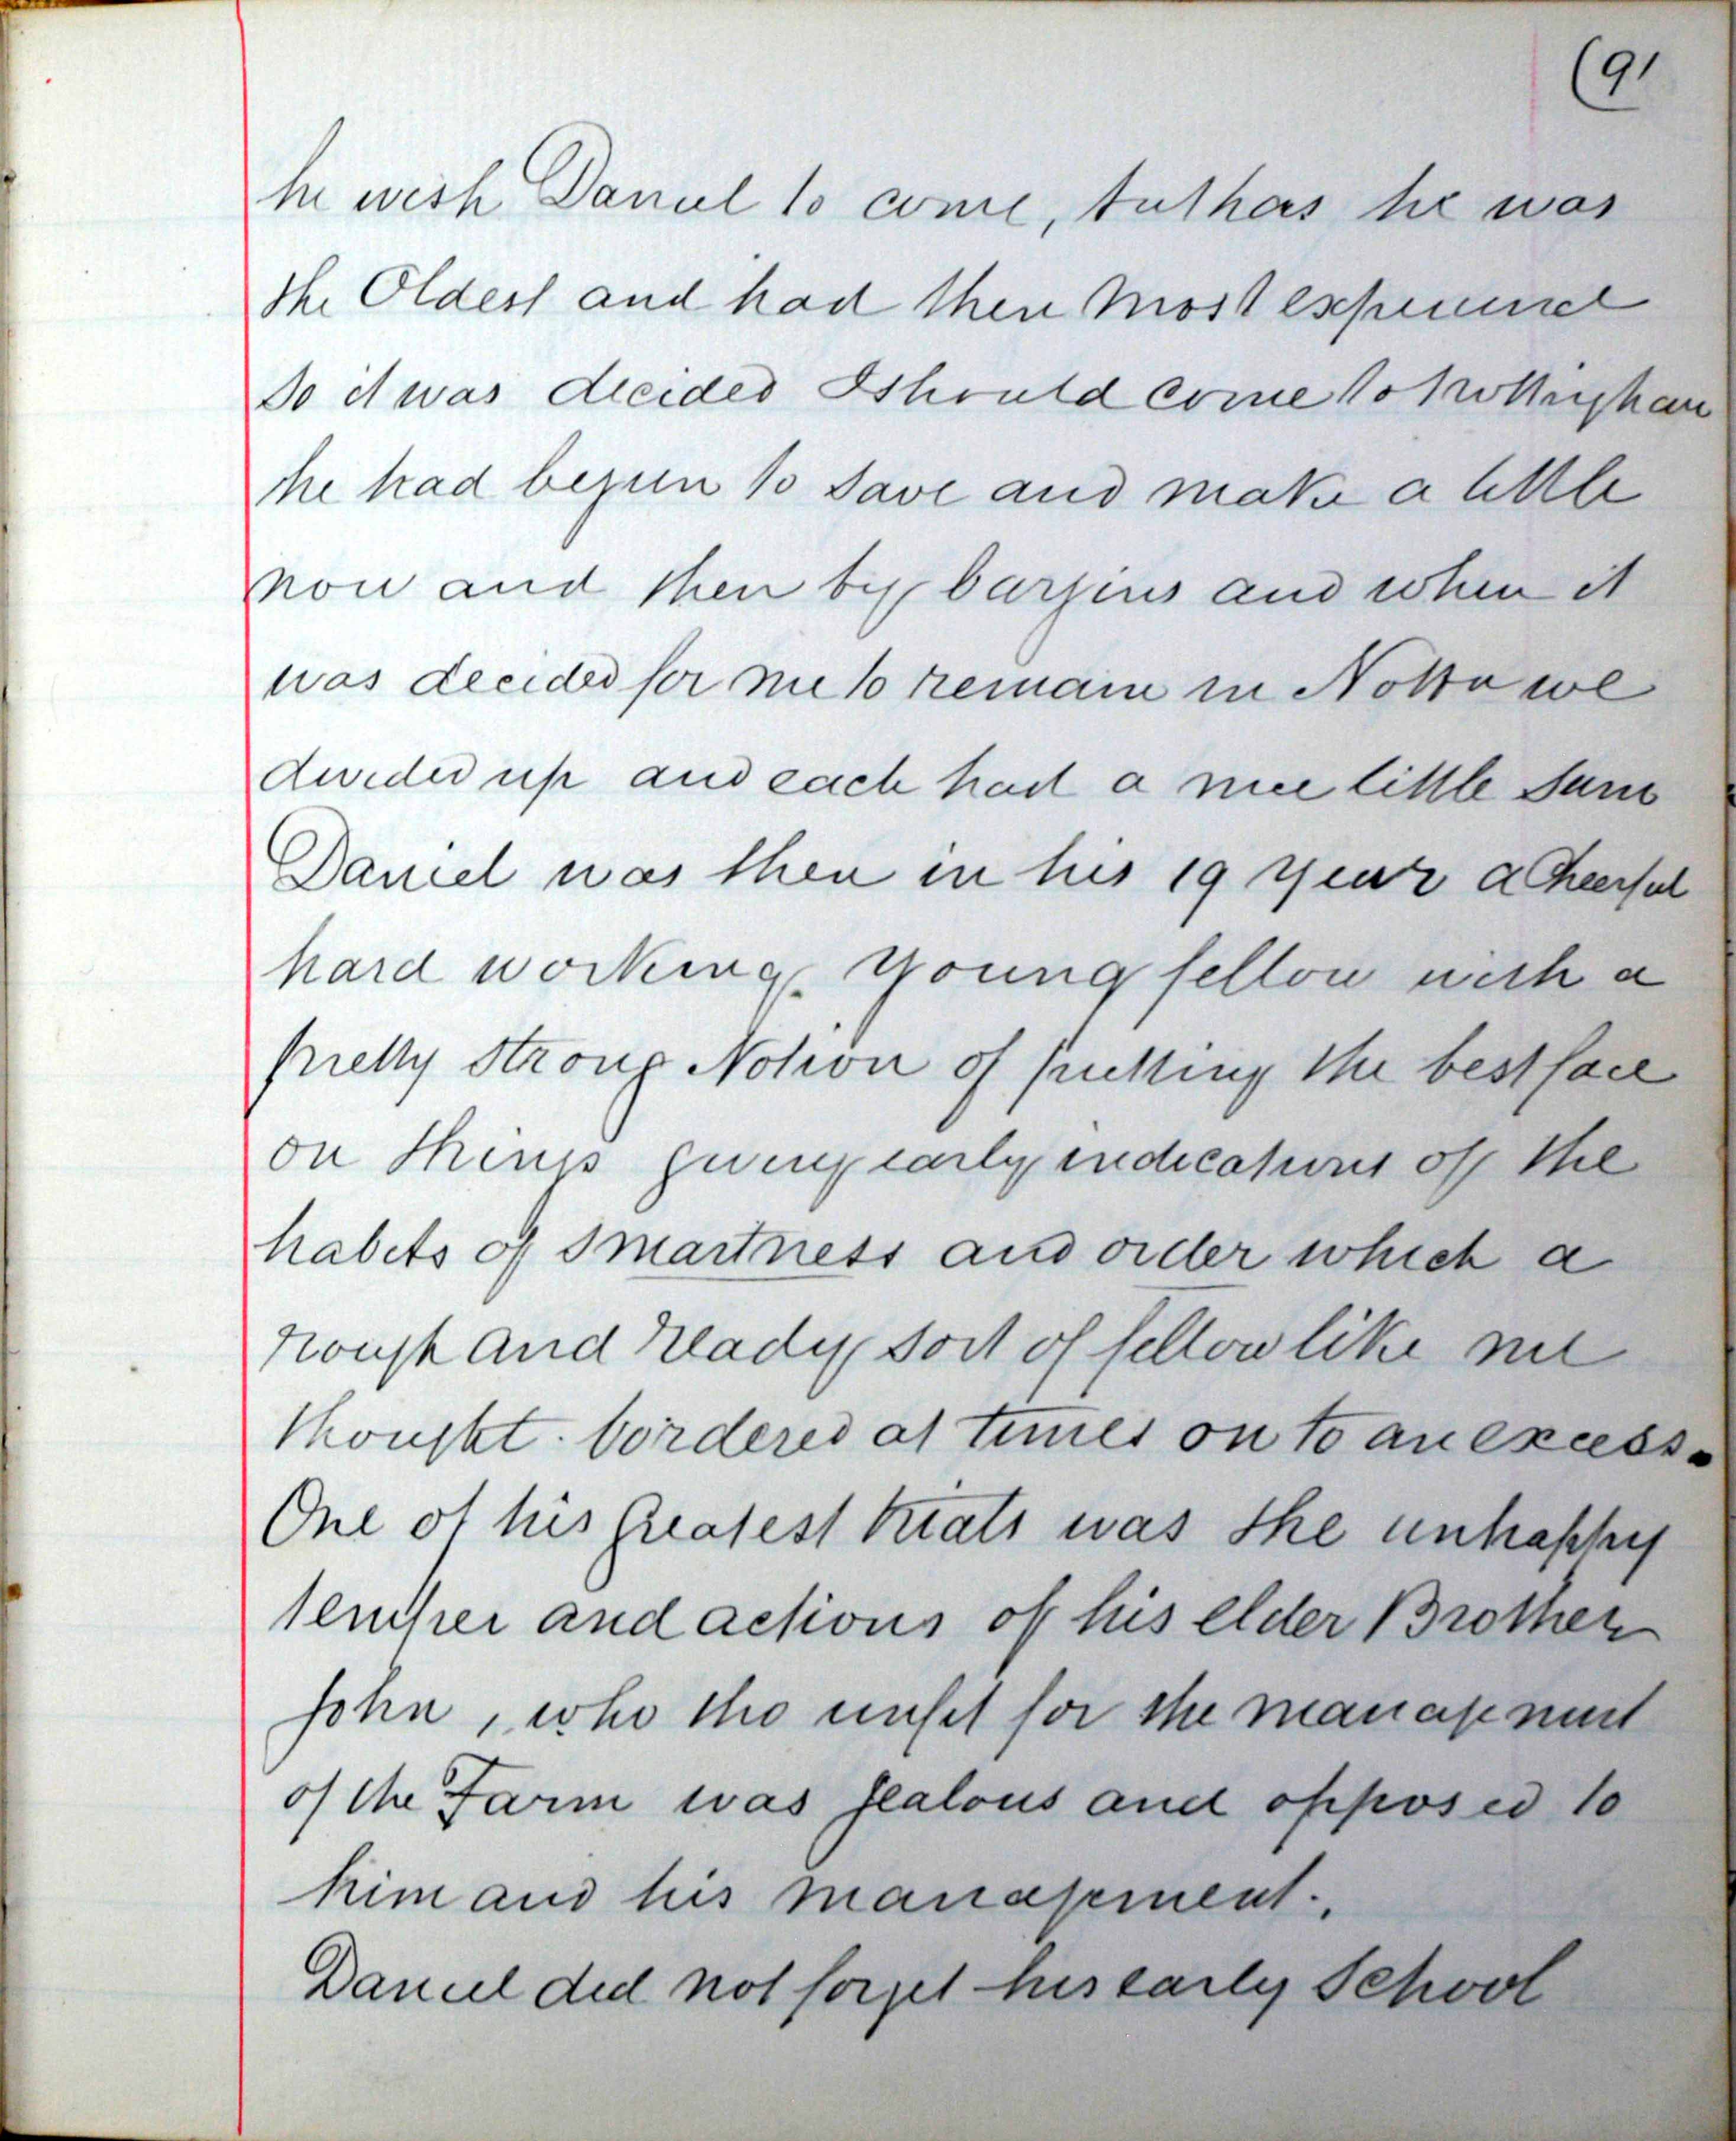 (91
he wish Daniel to come, but has he was
the Oldest and had then most experience
So it was decided I should come to Nottingham
he had begun to save and make a little
now and then by bargins and when it
was decided for me to remain in Nottm we
divided up and each had a nice little Sum
Daniel was then in his 19 year a Cheerful
hard working young fellow with a
pretty Strong Notion of putting the best face
on things giving early indications of the
habits of Smartness and order which a
rough and ready sort of fellow like me
thought bordered at times on to an excess.
One of his greatest trials was the unhappy
temper and actions of his elder Brother
John, who tho unfit for the management
of the Farm was jealous and opposed to
him and his management.
Daniel did not forget his early School